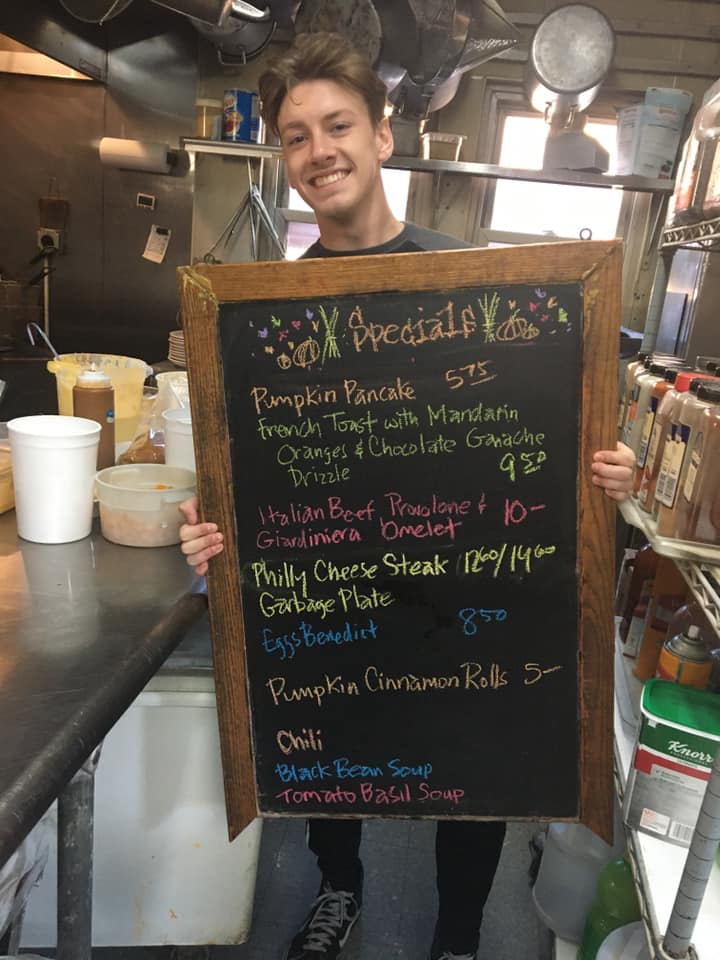 Specials
Pumpkin Pancake 5.75
French Toast with Mandarin
Oranges & Chocolate Ganache
Drizzle 9.50
Italian Beef, Provolone & 10-
Giardiniera Omelet
Philly Cheese Steak 12.60/14.60
Garbage Plate
Eggs Benedict 8.50
Pumpkin Cinnamon Rolls 5-
Chili
Black Bean Soup
Tomato Basil Soup
Knorr